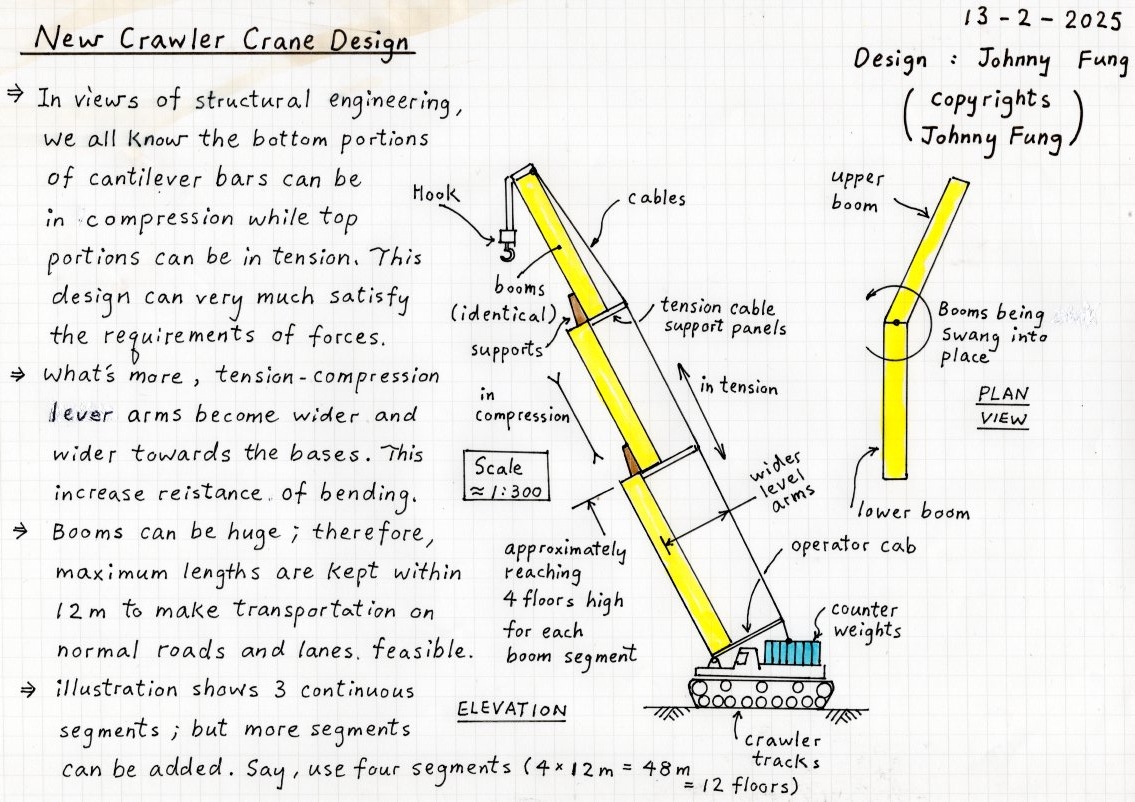 New Crawler Crane Design
13 - 2 - 2025
Design : Johnny Fung
(copyrights
Johnny Fung)
⇒ In views of structural engineering,
we all know the bottom portions
of cantilever bars can be
in compression while top
portions can be in tension. This
design can very much satisfy
the requirements of forces.
⇒ what's more, tension-compression
lever arms become wider and
wider towards the bases. This
increase reistance. of bending.
⇒ Booms can be huge ; therefore,
maximum lengths are kept within
12 m to make transportation on
normal roads and lanes. feasible.
⇒ illustration shows 3 continuous
segments ; but more segments
can be added. Say, use four segments (4 × 12 m = 48 m
= 12 floors)
Hook
cables
booms
(identical)
supports
tension cable
support panels
in
compression
in tension
Scale
≈ 1:300
wider
level
arms
approximately
reaching
4 floors high
for each
boom segment
operator cab
counter
weights
ELEVATION
crawler
tracks
upper
boom
Booms being
swang into
place
PLAN
VIEW
lower boom